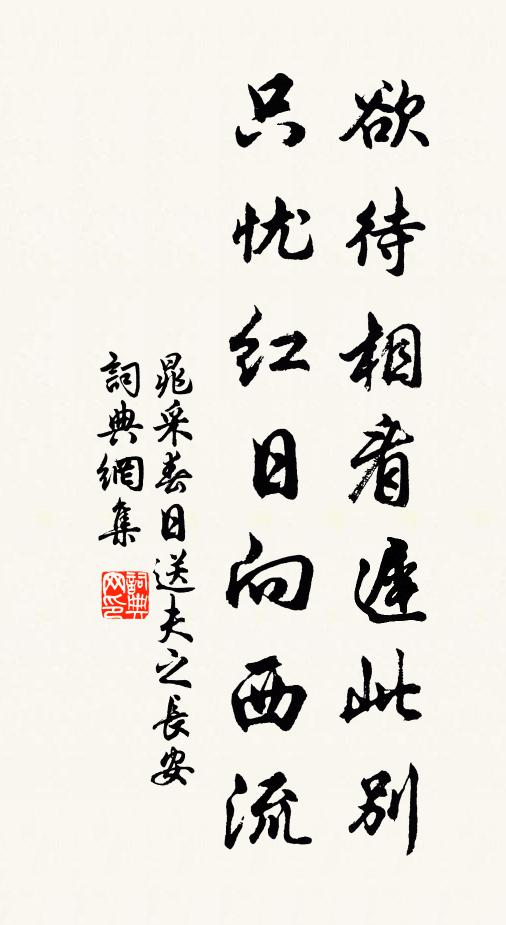 欲待相看遲此別
只忧红日向西流
晁采春日送夫之長安
詞典網集
詞典网印